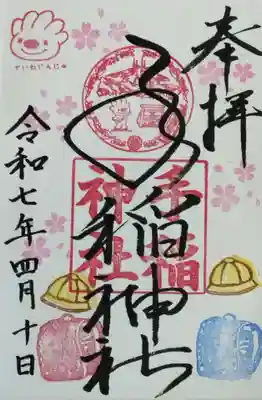 奉拝
手稲神社
手稲
神社
令和七年四月十日
ていねじんじゃ